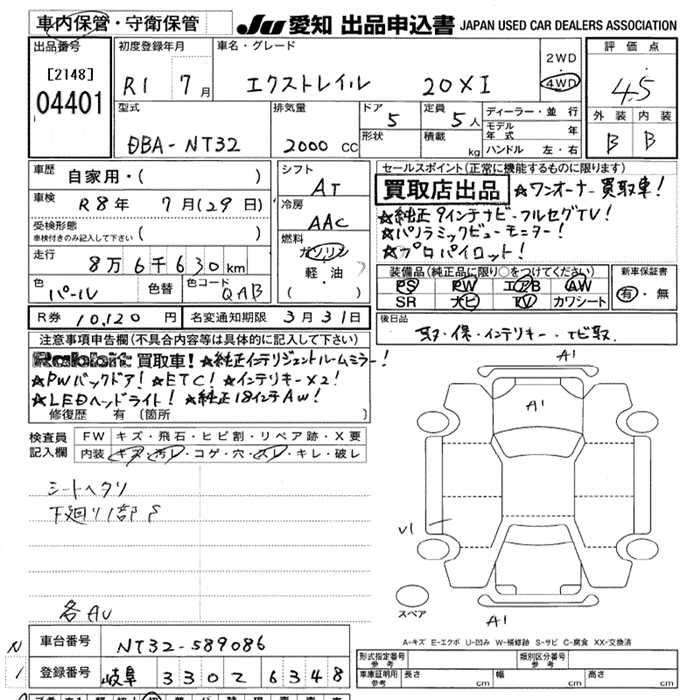 車内保管・守衛保管
JU 愛知 出品申込書 JAPAN USED CAR DEALERS ASSOCIATION
出品番号
[2148]
04401
初度登録年月
R1 7月
車名・グレード
エクストレイル 20XI
2WD
4WD
評価点
4.5
外装 内装
B B
型式
DBA-NT32
排気量
2000 cc
ドア
5
形状
定員
5人
積載
kg
ディーラー・並行
モデル年式 年
ハンドル 左・右
車歴 自家用・( )
車検 R8年 7月(29日)
受検形態
車検付きのみ記入して下さい ( )
走行 8万6千630km
色 パール
色替
色コード QAB
シフト
AT
冷房
AAC
燃料
ガソリン
軽・油
( )
R券 10,120円
名変通知期限 3月31日
セールスポイント(正常に機能するものに限ります)
買取店出品 ☆ワンオーナー買取車!
☆純正9インチナビ・フルセグTV!
☆パノラミックビューモニター!
☆プロパイロット!
装備品(純正品に限り○をつけてください)
PS PW エアB AW
SR ナビ TV カワシート
新車保証書
有・無
後日品
取・保・インテリキー・ナビ取
注意事項申告欄(不具合内容等は具体的に記入して下さい)
Rabbit 買取車! ☆純正インテリジェントルームミラー!
☆PWバックドア! ☆ETC! ☆インテリキー×2!
☆LEDヘッドライト! ☆純正18インチAW!
修復歴 有 〔箇所
検査員記入欄
FW キズ・飛石・ヒビ割・リペア跡・X要
内装 キズ・汚レ・コゲ・穴・スレ・キレ・破レ
シートヘタリ
下廻り1部S
各AU
A1
A1
U1
A1
スペア
A-キズ E-エクボ U-凹み W-補修跡 S-サビ C-腐食 XX-交換済
車台番号 NT32-589086
登録番号 岐阜 330 Z 6348
形式指定番号 参考
類別区分番号 参考
車庫証明用 参考
長さ cm 幅 cm 高さ cm